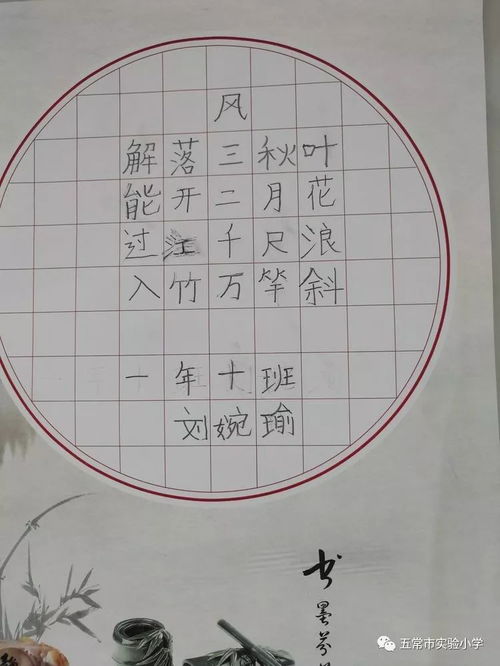 风
解落三秋叶
能开二月花
过江千尺浪
入竹万竿斜
一年十班
刘婉瑜
书墨芬
五常市实验小学